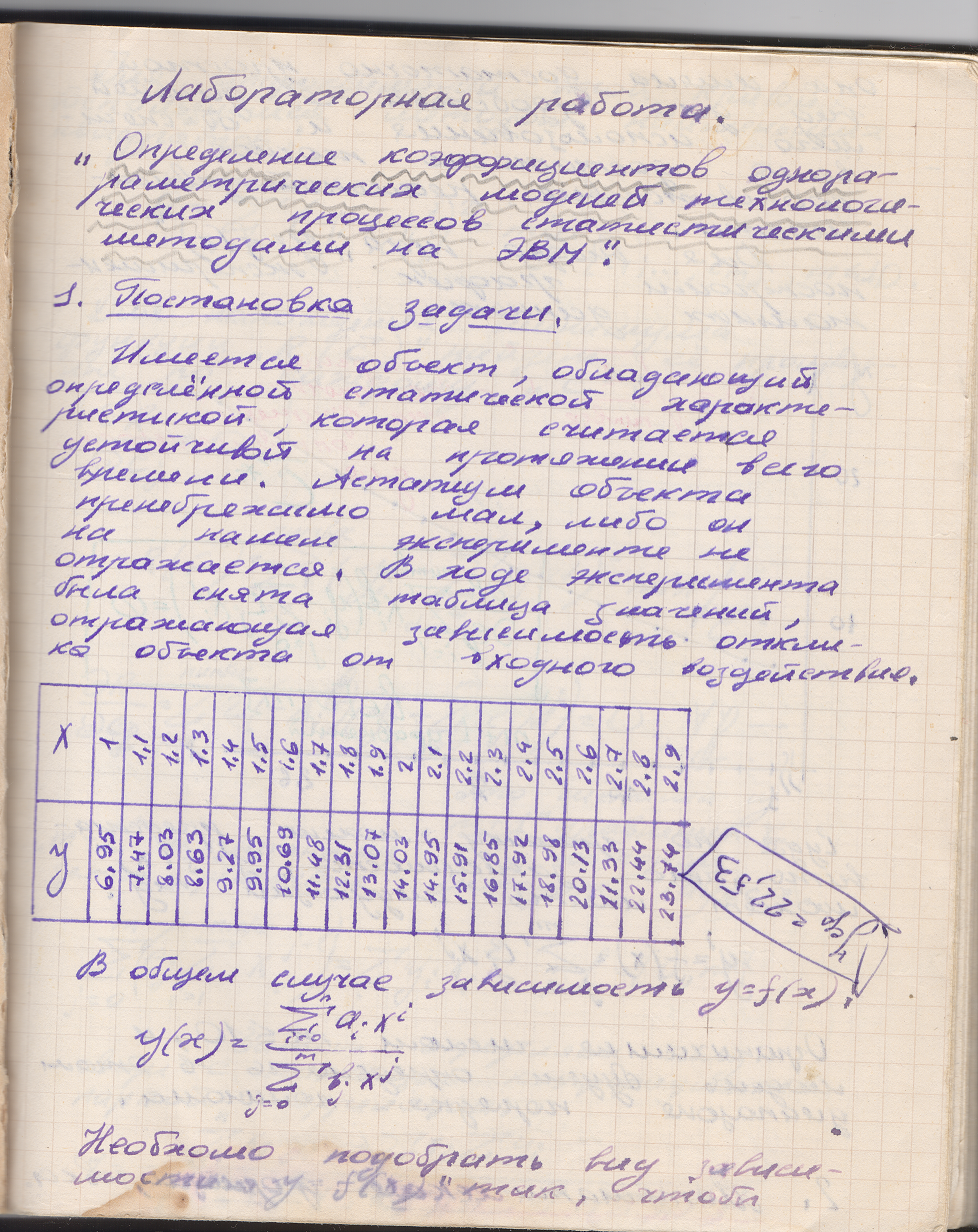 Лабораторная работа.
„Определение коэффициентов однопа-
раметрических моделей технологи-
ческих процессов статистическими
методами на ЭВМ".
1. Постановка задачи.
Имеется объект, обладающий
определённой статической характе-
ристикой, которая считается
устойчивой на протяжении всего
времени. Астатизм объекта
пренебрежимо мал, либо он
на нашем эксперименте не
отражается. В ходе эксперимента
была снята таблица значений,
отражающая зависимость откли-
ка объекта от входного воздействия.
x 1 1,1 1,2 1,3 1,4 1,5 1,6 1,7 1,8 1,9 2 2,1 2,2 2,3 2,4 2,5 2,6 2,7 2,8 2,9
y 6.95 7.47 8.03 8.63 9.27 9.95 10.69 11.48 12.31 13.07 14.03 14.95 15.91 16.85 17.92 18.98 20.13 21.33 22.44 23.74
yср = 22,53
В общем случае зависимость y=f(x):
y(x)= \frac{\sum_{i=0}^{n} a_i x^i}{\sum_{j=0}^{m} b_j x^j}
Необхомо подобрать вид зависи-
мости так, чтобы